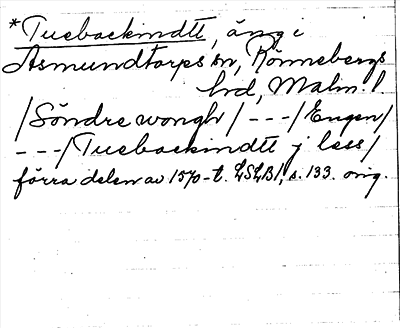 *Tuebackindtt, äng i
Asmundtorps sn, Rönnebergs
hd, Malm. l.
/Söndre wongh/ ---/Engen/
---/Tuebackindtt j less/
förra delen av 1570-t. LSLB1, s. 133. orig.